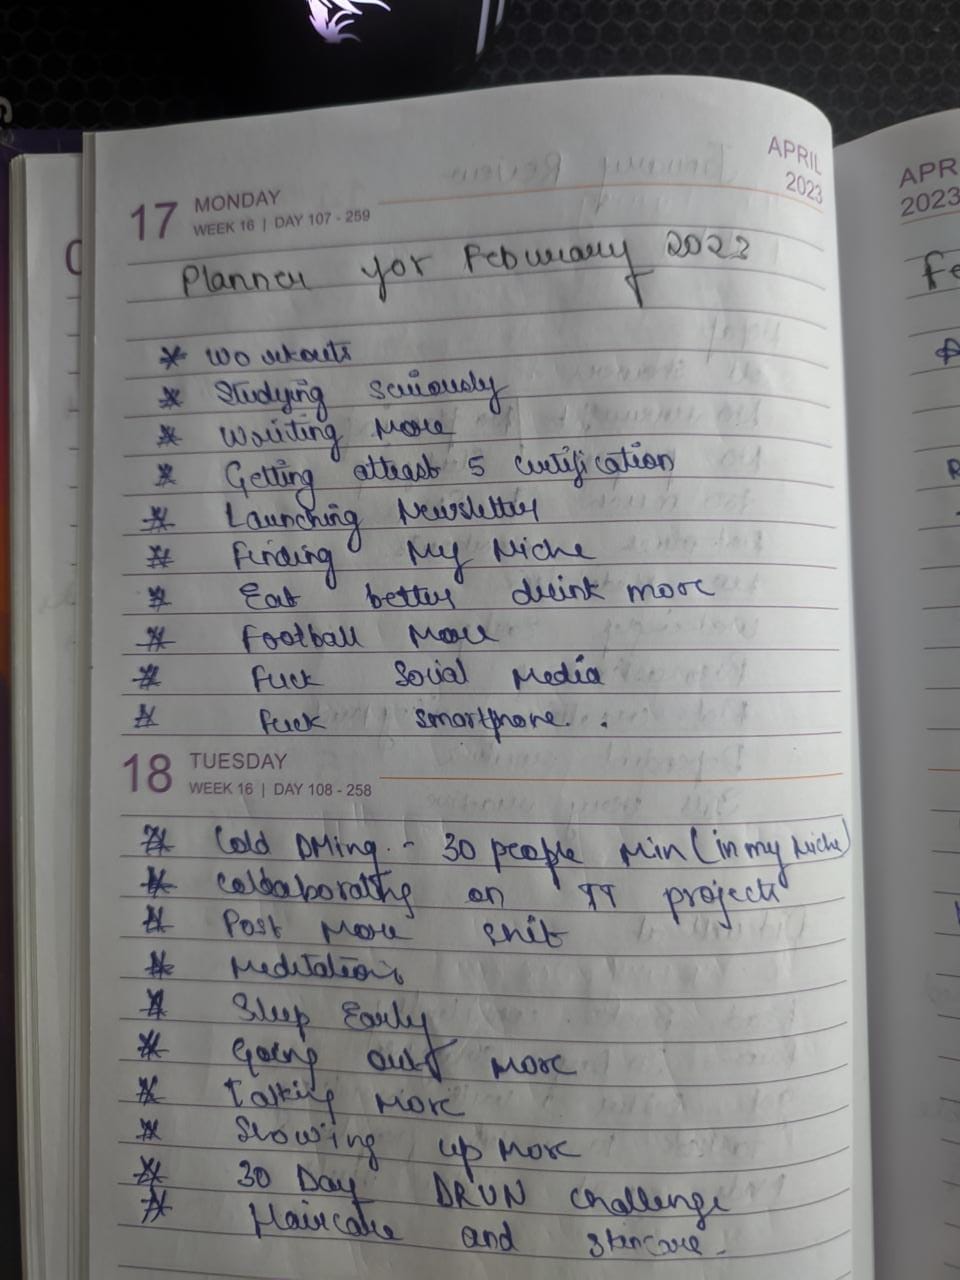 APRIL
2023
17 MONDAY
WEEK 16 | DAY 107 - 259
Planner for February 2023
* Workouts
* Studying seriously
* Writing More
* Getting atleast 5 certification
* Launching Newsletter
* Finding My Niche
* Eat better drink more
* Football More
* Fuck Social Media
* Fuck smartphone.
18 TUESDAY
WEEK 16 | DAY 108 - 258
* Cold DMing - 30 people Min (in my Niche)
* Collaborating on projects
* Post More shit
* Meditation
* Sleep Early
* Going out More
* Talking More
* Showing up More
* 30 Day Challenge
* Haircare and skincare.
APR
2023
Fe